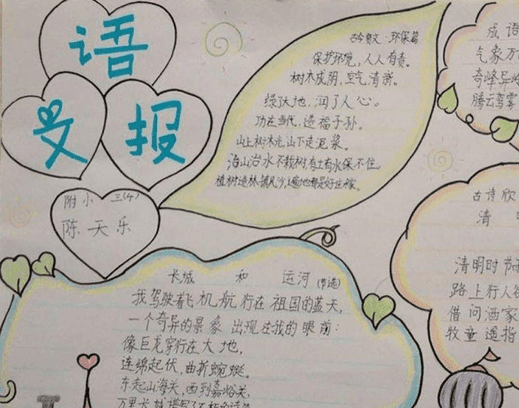 语
文
报
附小 三(4)
陈天乐
古今贤文·环保篇
保护环境,人人有责。
树木成阴,空气清新。
绿了大地,润了人心。
功在当代,造福子孙。
山上树木光,山下走泥浆。
治山治水不栽树,有土有水保不住。
植树造林
长城 和 运河(节选)
我驾驶着飞机航行在祖国的蓝天,
一个奇异的景象出现在我的眼前:
像巨龙穿行在大地,
连绵起伏,曲折蜿蜒。
东起山海关,西到嘉峪关,
万里长城
成语
气象万
奇峰异
腾云驾雾
古诗欣
清
清明时节
路上行人
借问酒家
牧童遥指